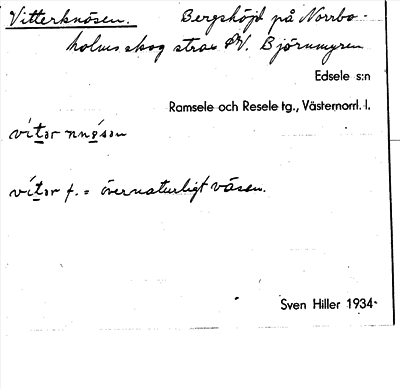 Vitterknösen. Bergshöjd på Norrbo-
holms skog strax N. Björnmyren
Edsele s:n
Ramsele och Resele tg., Västernorrl. l.
vítər
vítər f. = övernaturligt väsen.
Sven Hiller 1934